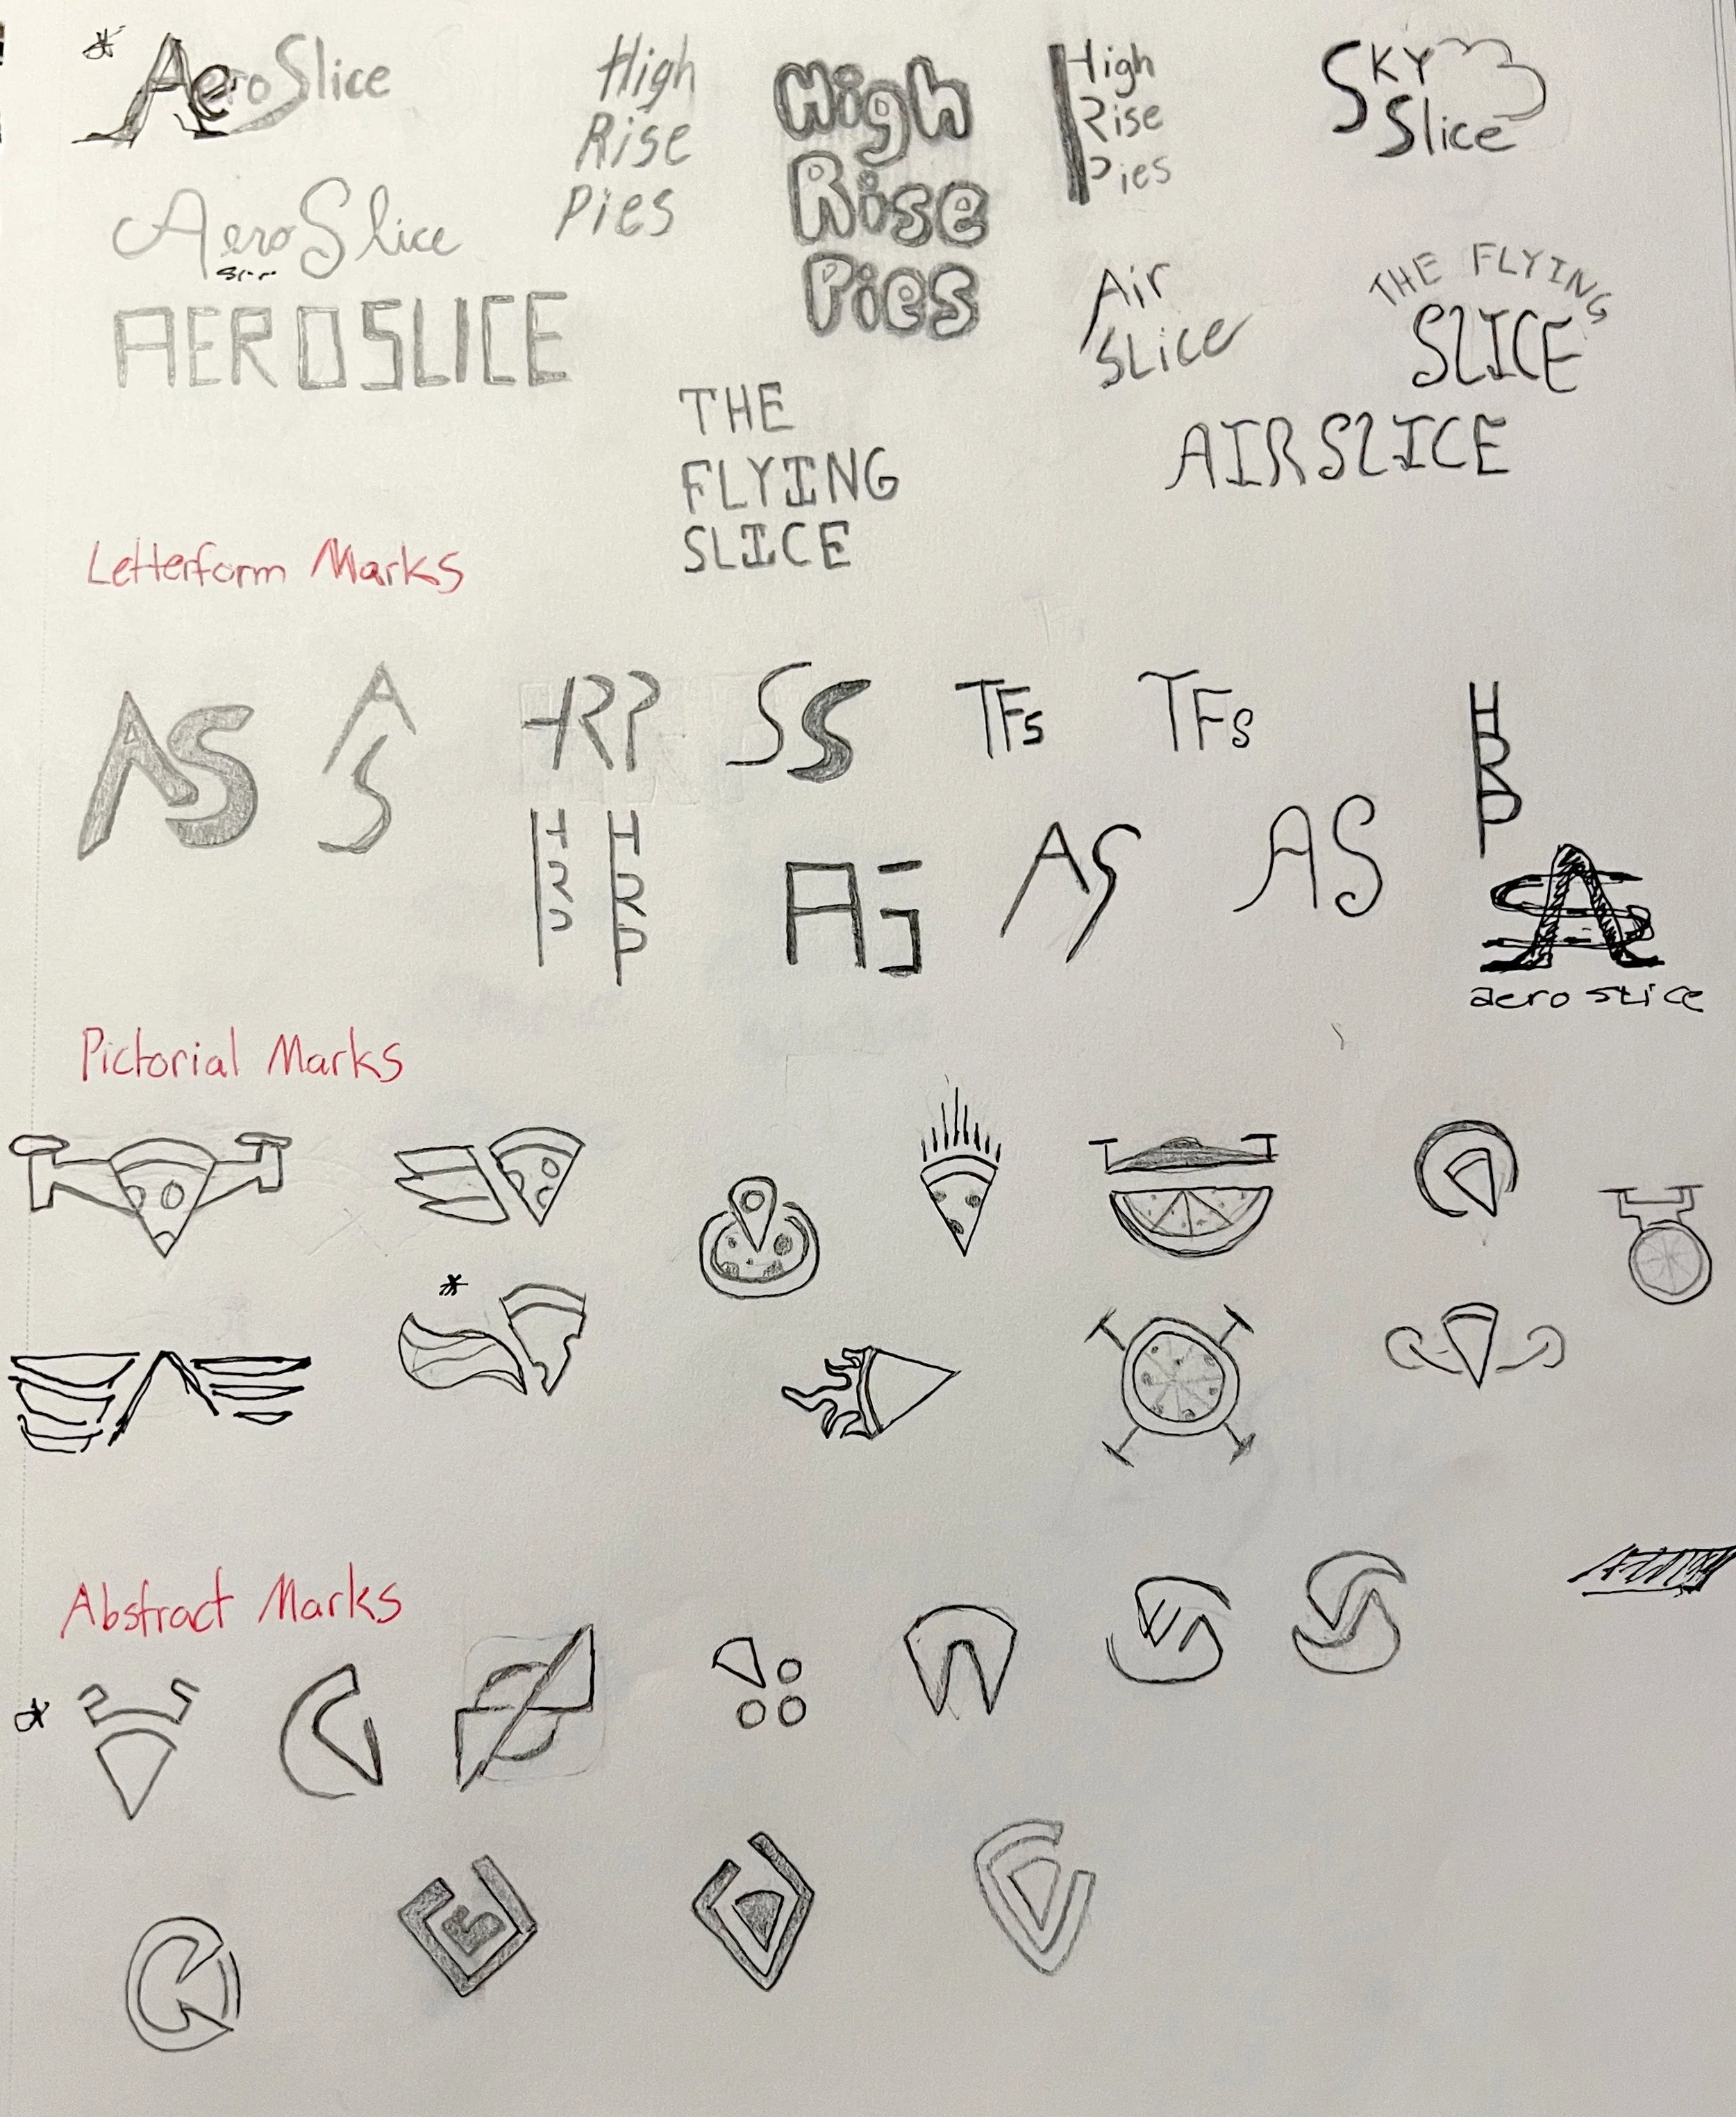 AeroSlice
High
Rise
Pies
High
Rise
Pies
High
Rise
Pies
SKY
Slice
AeroSlice
AEROSLICE
Air
SLice
THE FLYING
SLICE
AIRSLICE
THE
FLYING
SLICE
Letterform Marks
AS
A
S
HRP
SS
TFs
TFs
H
R
P
H
R
P
H
R
P
AS
AS
AS
A
aero slice
Pictorial Marks
Abstract Marks